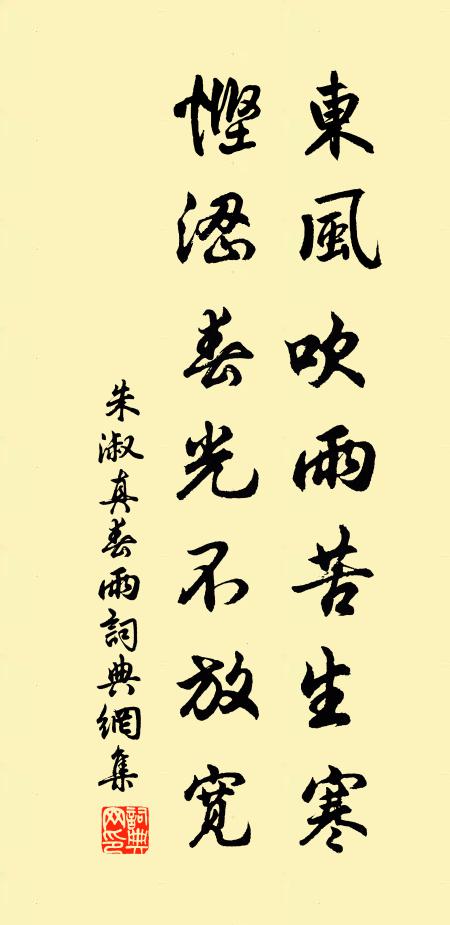 東風吹雨苦生寒
慳澀春光不放寬
朱淑真春雨詞典網集
詞典网印